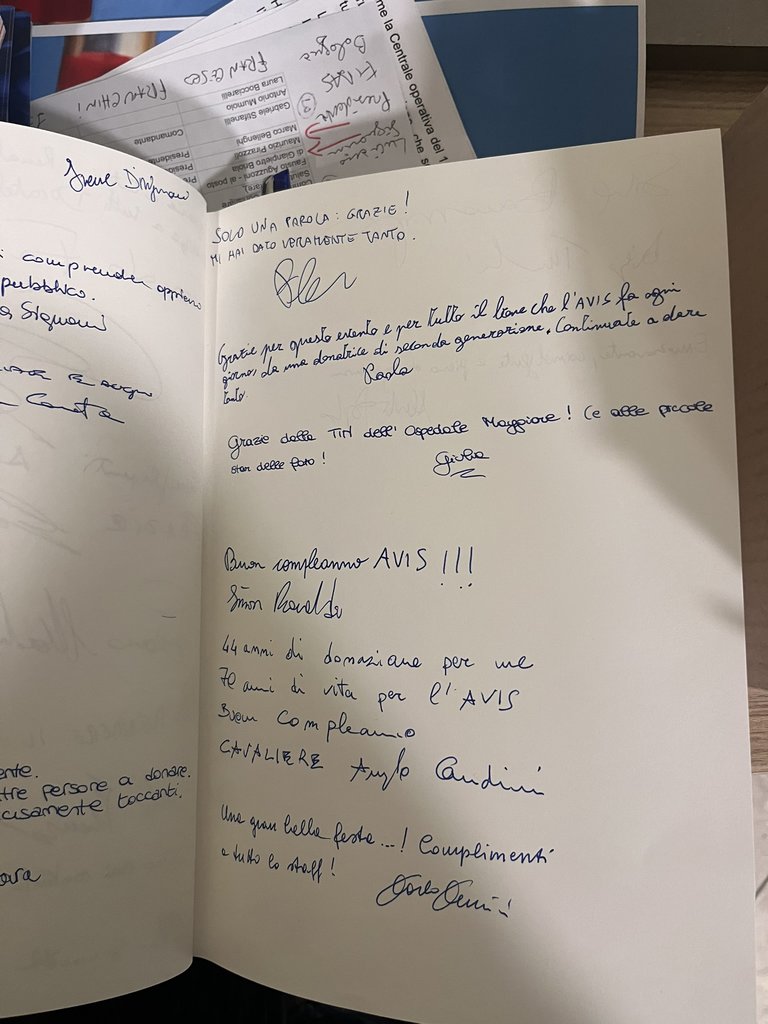 me la Centrale operativa del 1
che s
Bologna
FIDAS
Presidente
FRANCESCO
FRANCHINI
Laura Bocciarelli
Antonio Mumolo
Gabriele Stefanelli
Marco Bellenghi
Comandante
Maurizio Pirazzoli
Presidente
di Gianpietro Briola
Presi
Fausto Aguzzoni - al posto
Irene
comprendere
pubblico.
Signani
ente.
tre persone a donare.
cisamente toccanti.
ara
SOLO UNA PAROLA: GRAZIE!
MI HAI DATO VERAMENTE TANTO.
Grazie per questo evento e per tutto il bene che l'AVIS fa ogni
giorno, da una donatrice di seconda generazione. Continuate a dare
tanto.
Paola
Grazie dalla TIN dell'Ospedale Maggiore! (e alle piccole
star delle foto!
Giulia
Buon compleanno AVIS !!!
44 anni di donazione per me
70 anni di vita per l'AVIS
Buon Compleanno
CAVALIERE Angelo Candini
Una gran bella festa...! Complimenti
a tutto lo staff!